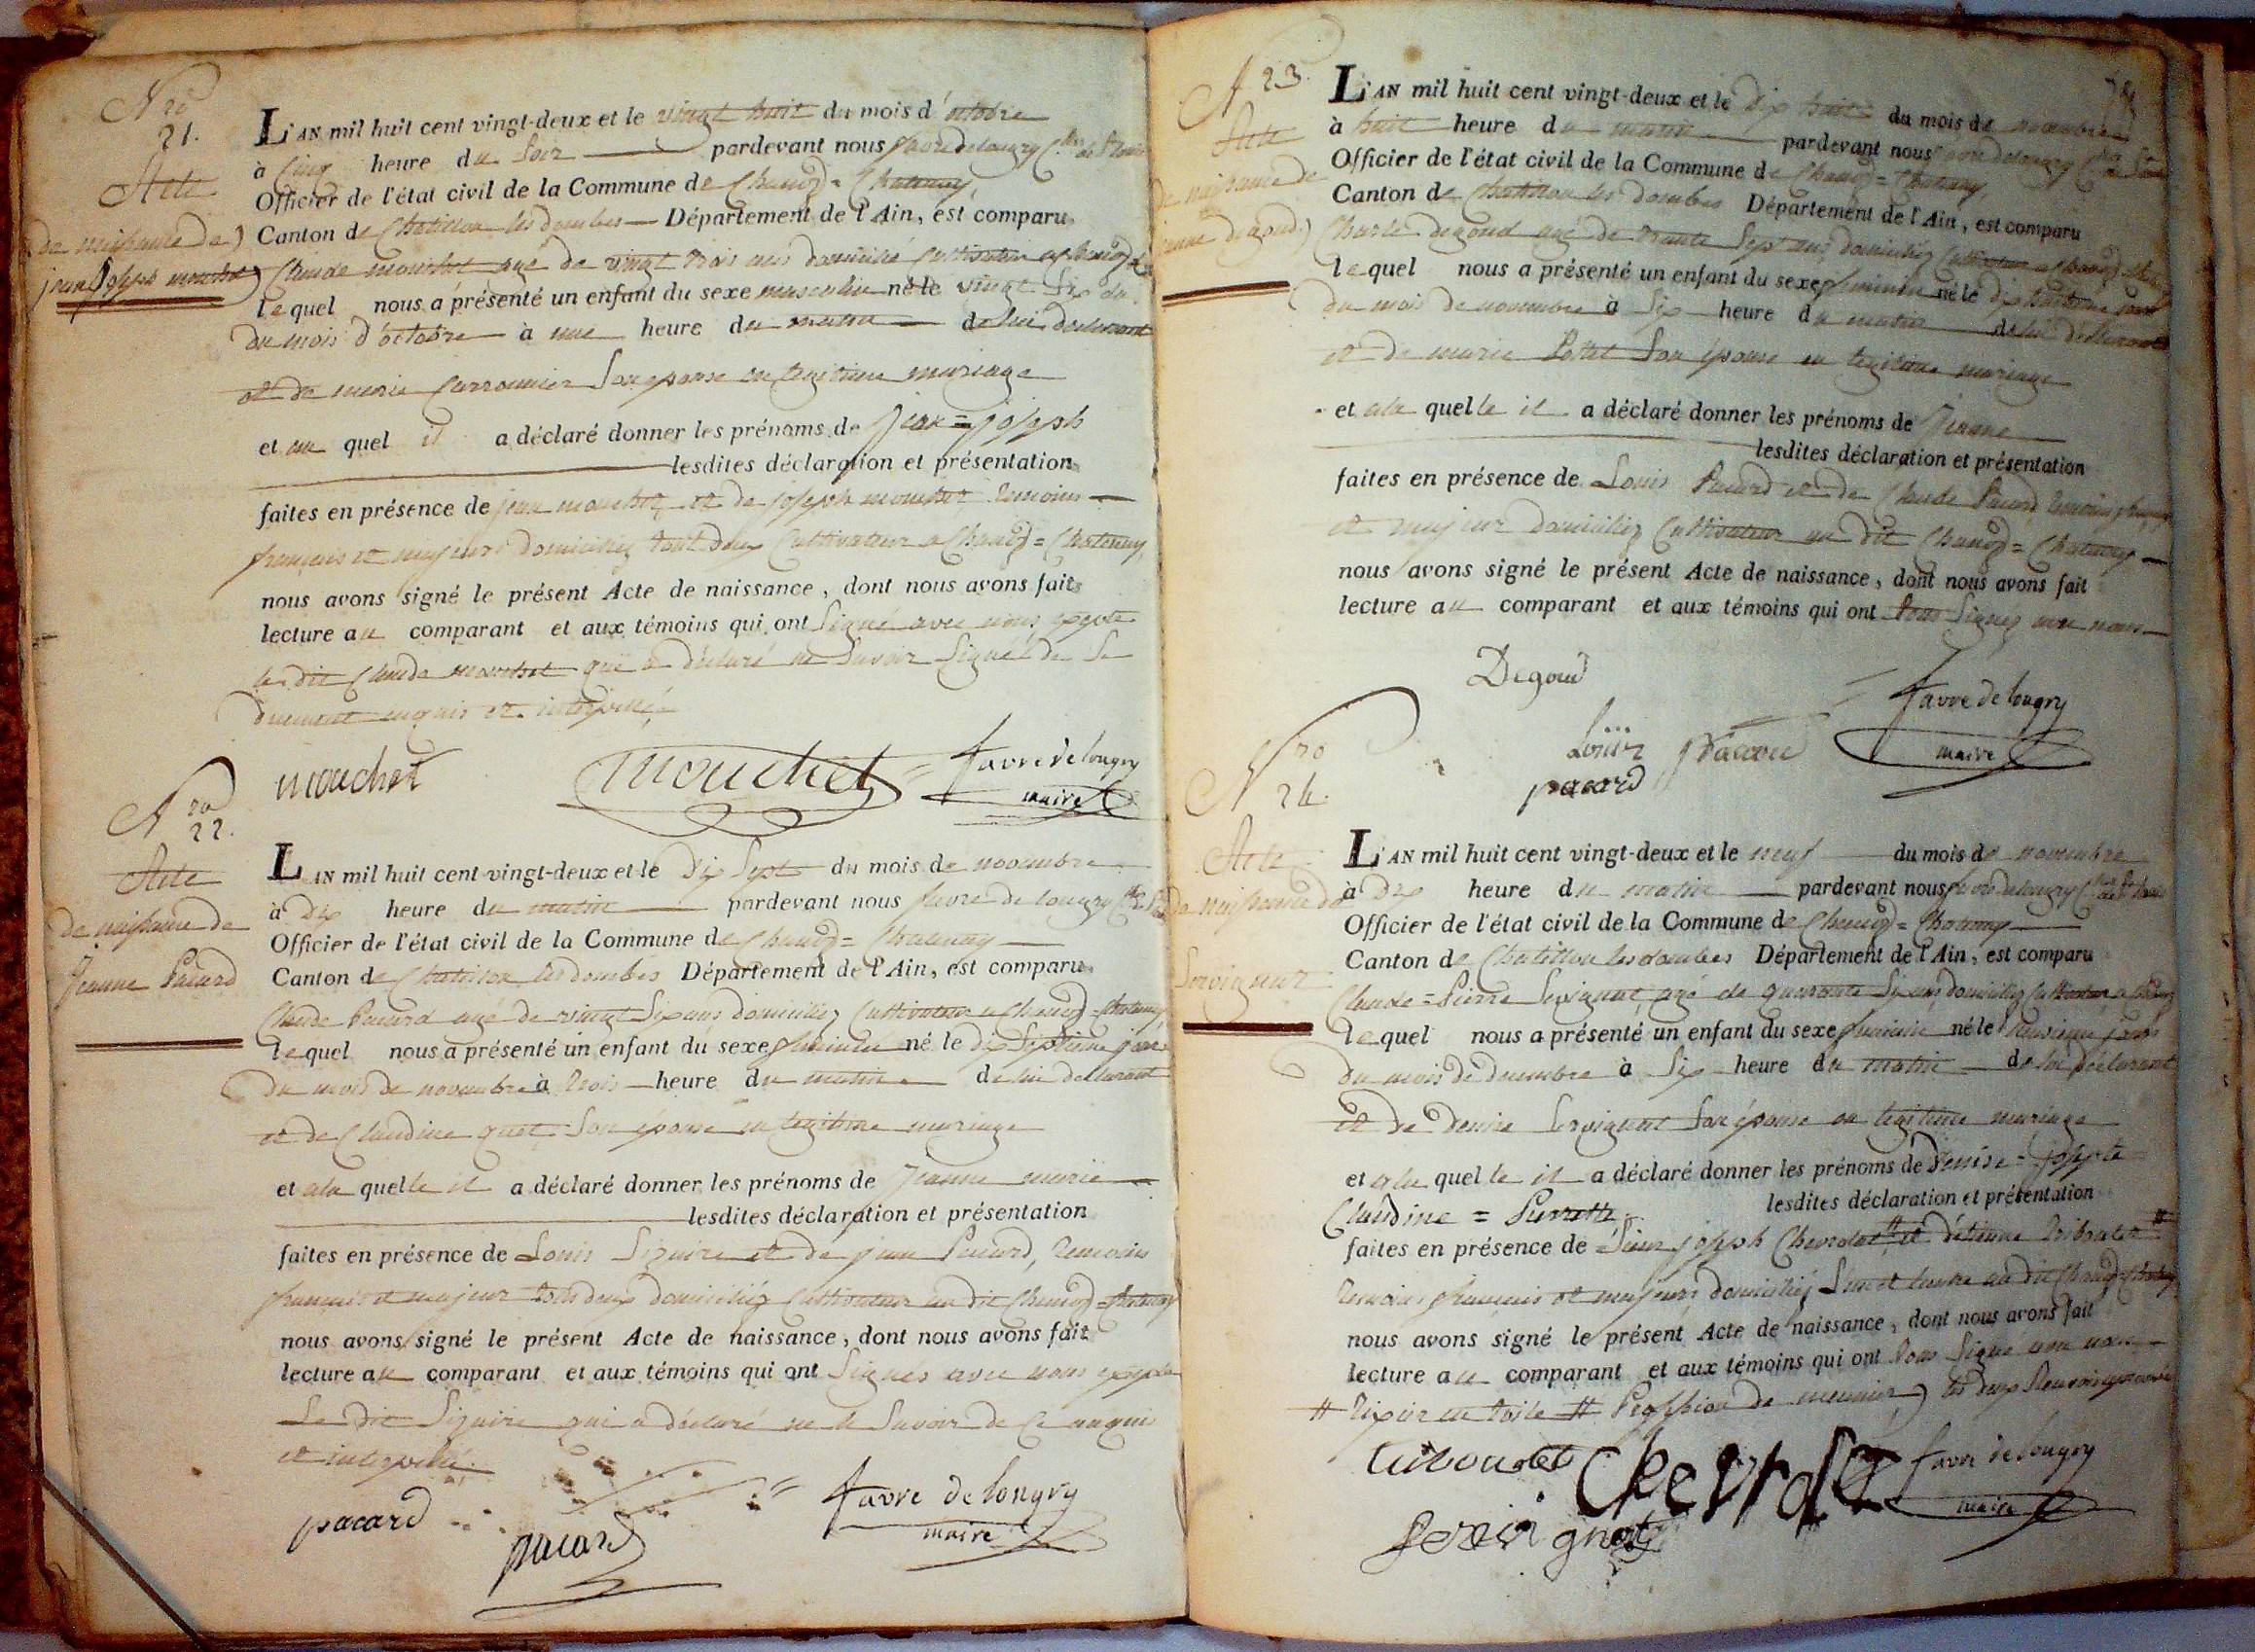 Nro
21.
Acte
de naissance de
jean joseph mouchet
L'AN mil huit cent vingt-deux et le vingt huit du mois d'octobre
à cinq heure du soir pardevant nous favre de longry
Officier de l'état civil de la Commune de Chanoz=Chatenay,
Canton de Chatillon les dombes Département de l'Ain, est comparu
Claude mouchet agé de vingt trois ans domicilié Cultivateur a Chanoz
lequel nous a présenté un enfant du sexe masculin né le vingt six du
du mois d'octobre à une heure du matin de lui declarant
et de marie Carronnier son epouse en legitime mariage
et au quel il a déclaré donner les prénoms de jean=joseph
lesdites déclaration et présentation
faites en présence de jean mouchet, et de joseph mouchet temoins
français et majeurs domiciliez tout deux Cultivateur a Chanoz=Chatenay
nous avons signé le présent Acte de naissance, dont nous avons fait
lecture au comparant et aux témoins qui ont signé avec nous excepté
le dit Claude mouchet qui a déclaré ne savoir signé de ce
dument enquis et interpellé
mouchet mouchet favre de longry
maire
Nro
22.
Acte
de naissance de
Jeanne Pacard
L'AN mil huit cent vingt-deux et le Dix Sept du mois de novembre
à Dix heure du matin pardevant nous favre de longry
Officier de l'état civil de la Commune de Chanoz=Chatenay
Canton de Chatillon les dombes Département de l'Ain, est comparu
Claude Pacard agé de vingt Six ans domiciliez Cultivateur a Chanoz=Chatenay
lequel nous a présenté un enfant du sexe feminin né le dix Septieme jour
du mois de novembre à trois heure du matin de lui declarant
et de Claudine guet son épouse en legitime mariage
et a la quelle il a déclaré donner les prénoms de Jeanne marie
lesdites déclaration et présentation
faites en présence de Louis Siguire et de jean Pacard, temoins
français et majeur tous deux domiciliéz Cultivateur au dit Chanoz=Chatenay
nous avons signé le présent Acte de naissance, dont nous avons fait
lecture au comparant et aux témoins qui ont signés avec nous excepté
Le dit Siguire qui a déclaré ne le savoir de ce enquis
et interpellé.
pacard
pacard
favre de longry
maire
N 23.
Acte
de naissance de
jeanne degoud.
L'AN mil huit cent vingt-deux et le dix huit du mois de novembre
à huit heure du matin pardevant nous favre de longry
Officier de l'état civil de la Commune de Chanoz=Chatenay
Canton de Chatillon les dombes Département de l'Ain, est comparu
Charle degoud agé de trente Sept ans domiciliez Cultivateur a Chanoz
lequel nous a présenté un enfant du sexe feminin né le dix huitieme jour
du mois de novembre à six heure du matin de lui declarant
et de marie Potet son épouse en legitime mariage
et a la quelle il a déclaré donner les prénoms de Jeanne
lesdites déclaration et présentation
faites en présence de Louis Pacard et de Claude Pacard temoins français
et majeur domiciliez Cultivateur au dit Chanoz=Chatenay
nous avons signé le présent Acte de naissance, dont nous avons fait
lecture au comparant et aux témoins qui ont tous Signez avec nous
Degoud
favre de longry
maire
pacard
Nro
24.
Acte
de naissance de
Servignat
L'AN mil huit cent vingt-deux et le neuf du mois de novembre
à Dix heure du matin pardevant nous favre de longry
Officier de l'état civil de la Commune de Chanoz=Chatenay
Canton de Chatillon les dombes Département de l'Ain, est comparu
Claude=Pierre Servignat agé de quarante Six ans domiciliez Cultivateur a Chanoz
lequel nous a présenté un enfant du sexe feminin né le jour
du mois de decembre à Six heure du matin de lui déclarant
et de denise Servignat son épouse en legitime mariage
et a la quelle il a déclaré donner les prénoms de Denise=josephte
Claudine=Pierrette lesdites déclaration et présentation
faites en présence de Sieur joseph Chevrolat # et d'étienne triboulet #
temoins français et majeurs domiciliéz L'un et l'autre au dit Chanoz=Chatenay
nous avons signé le présent Acte de naissance, dont nous avons fait
lecture au comparant et aux témoins qui ont tous signé avec nous
# tixier en toile # Profession de meunier
Chevrolat
favre de longry
maire
Servignat